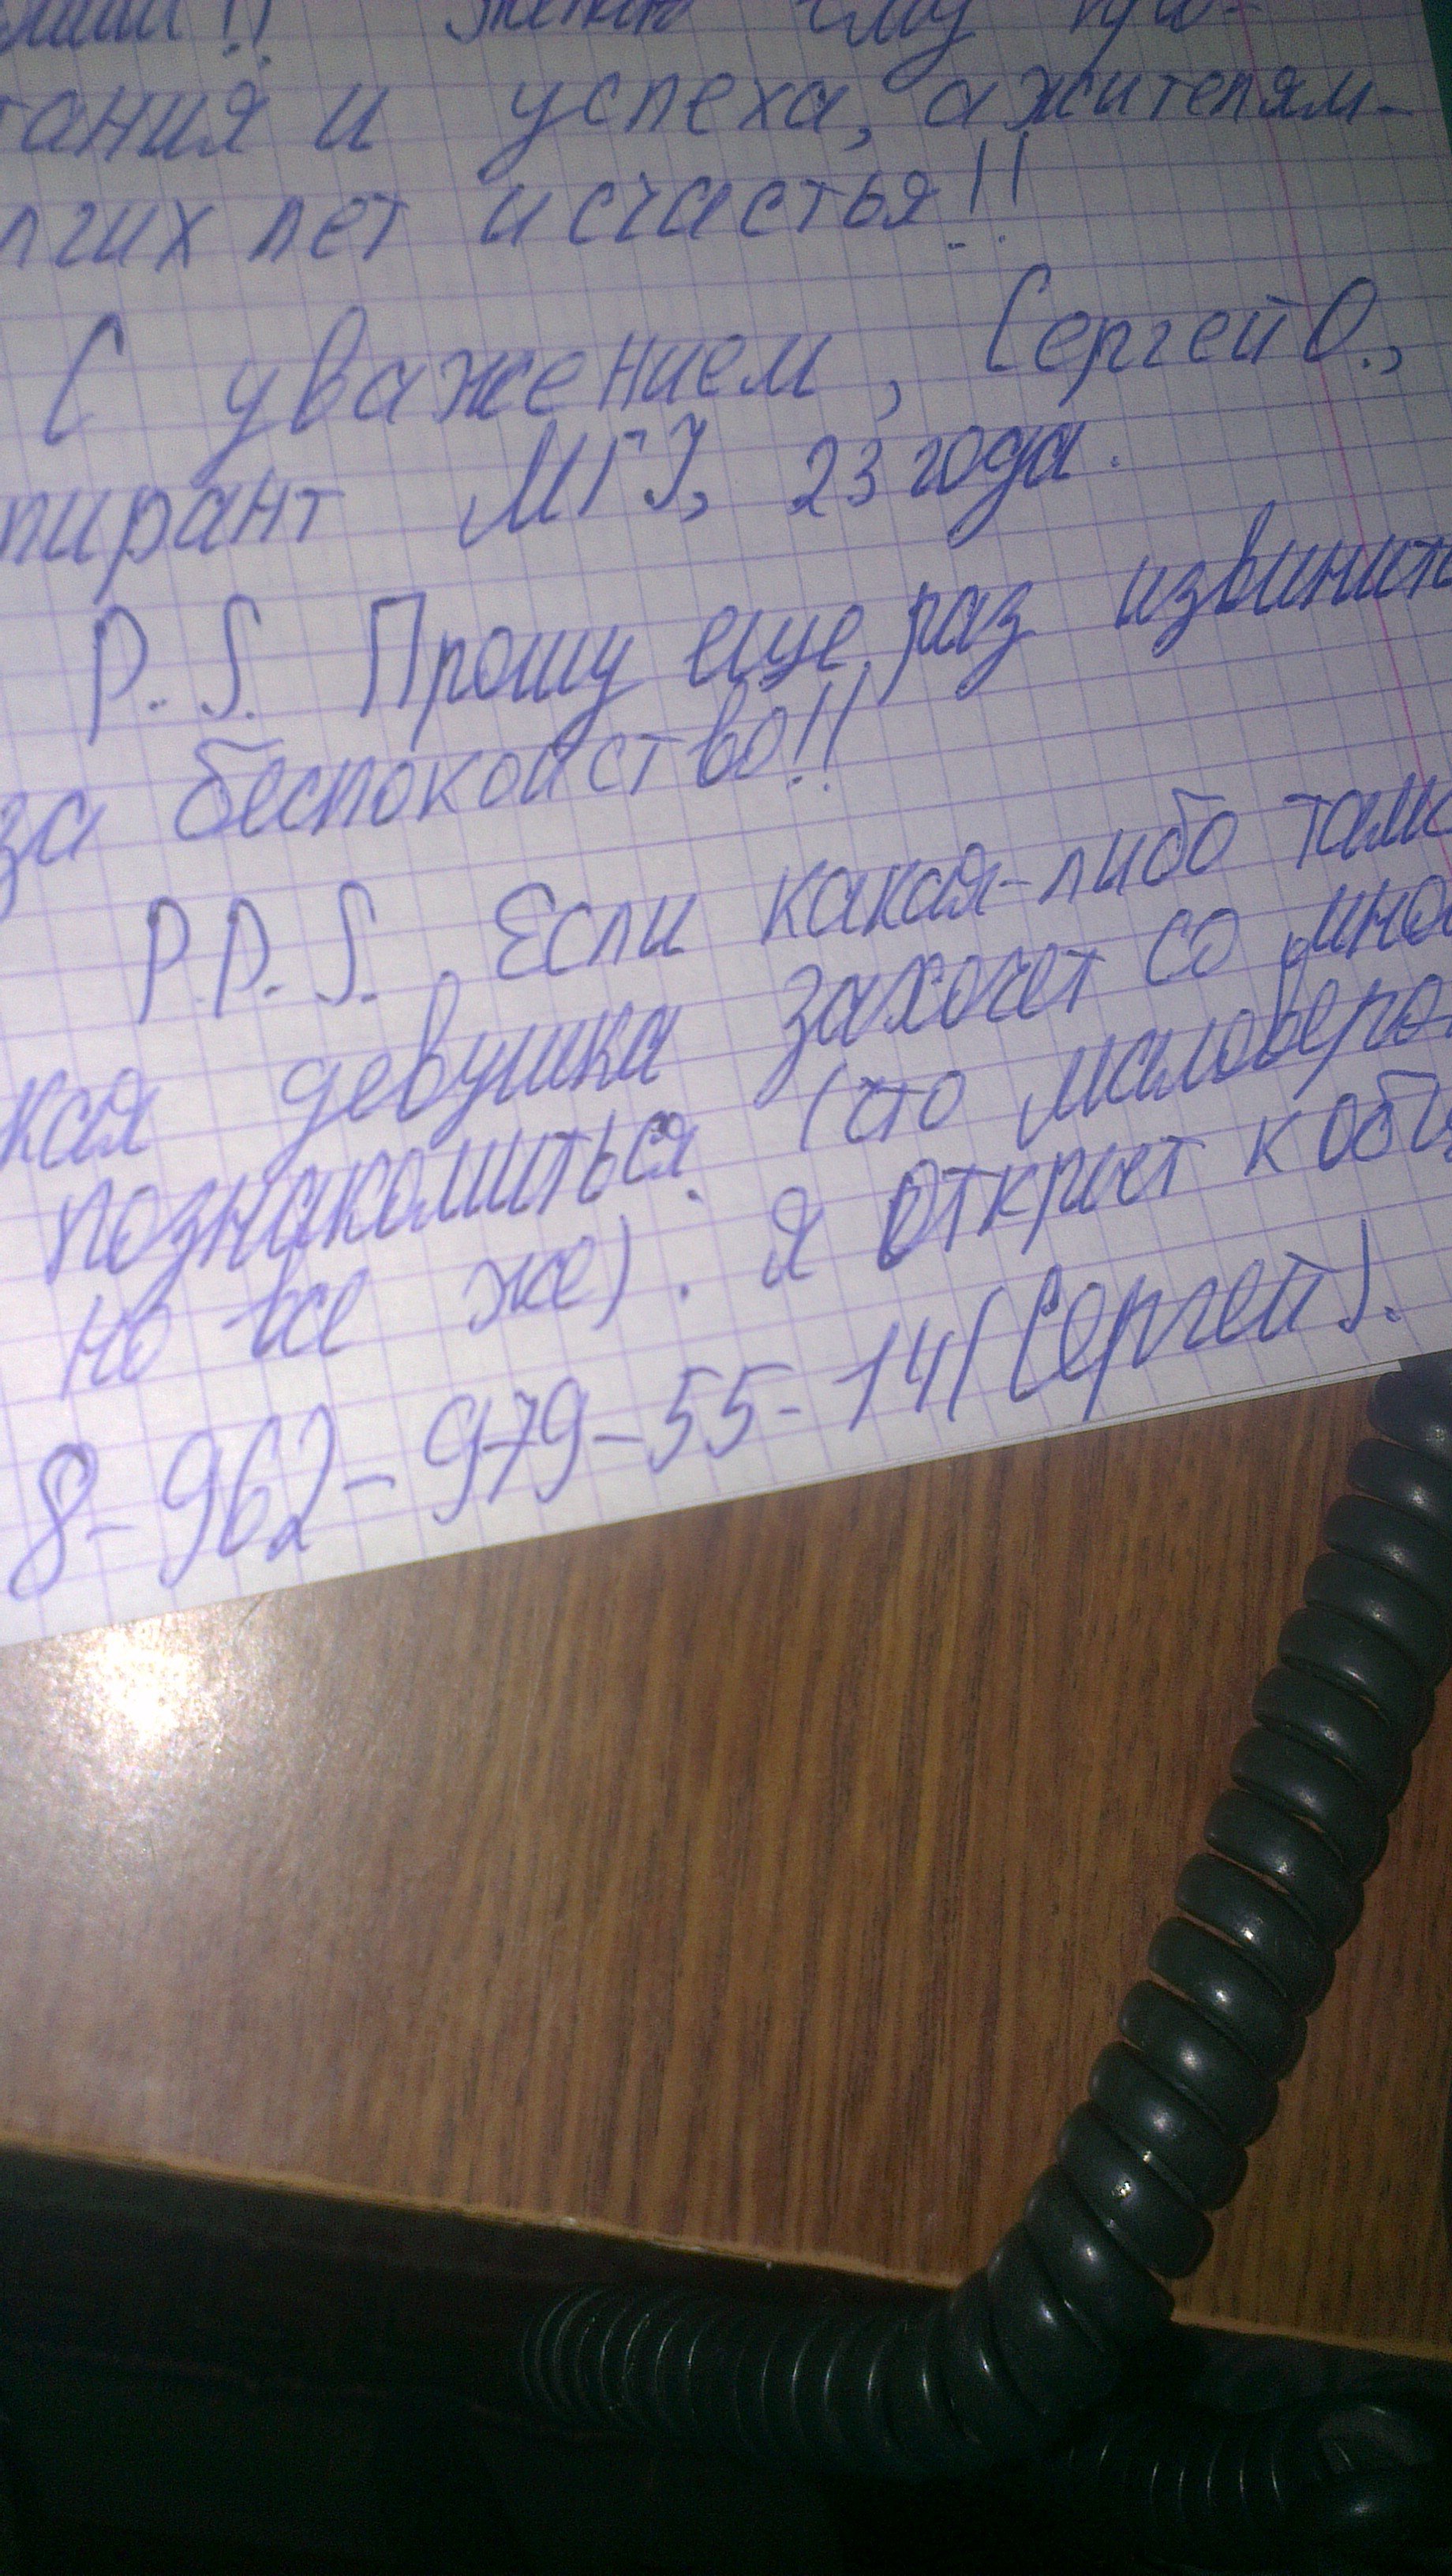 Желаю ему
тания и успеха, а жителям-
лгих лет и счастья!!
С уважением, Сергей О.,
пирант МГУ, 23 года.
P.S. Прошу еще раз извинить
за беспокойство!!
P.P.S. Если какая-либо там
кая девушка захочет со мной
познакомиться (что маловеро-
но все же). Я открыт к общ
8-962-979-55-14 (Сергей).